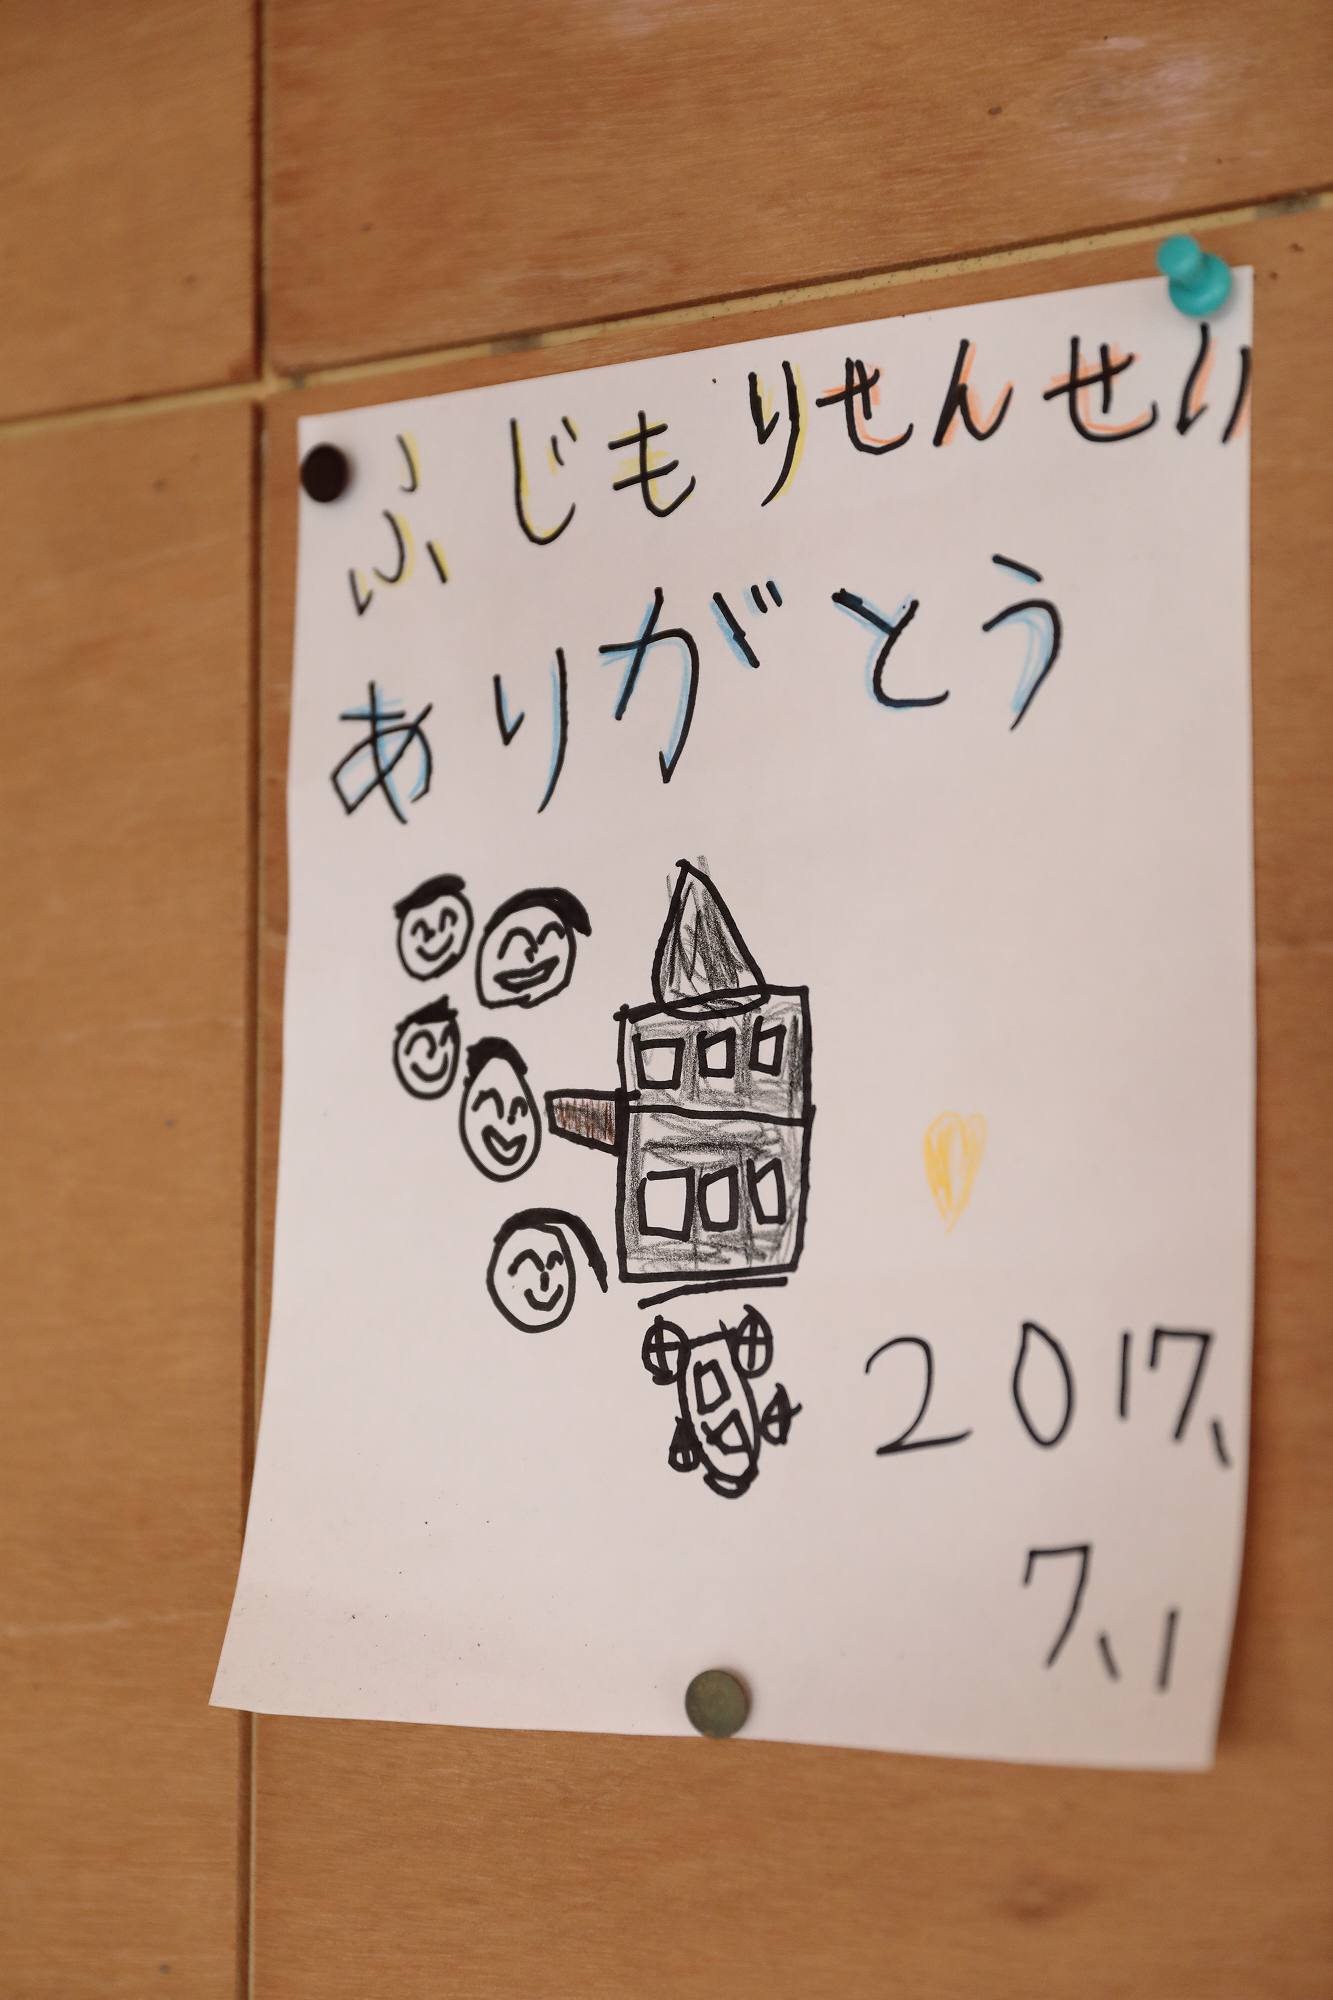 ふじもりせんせい
ありがとう
2017、
7、1